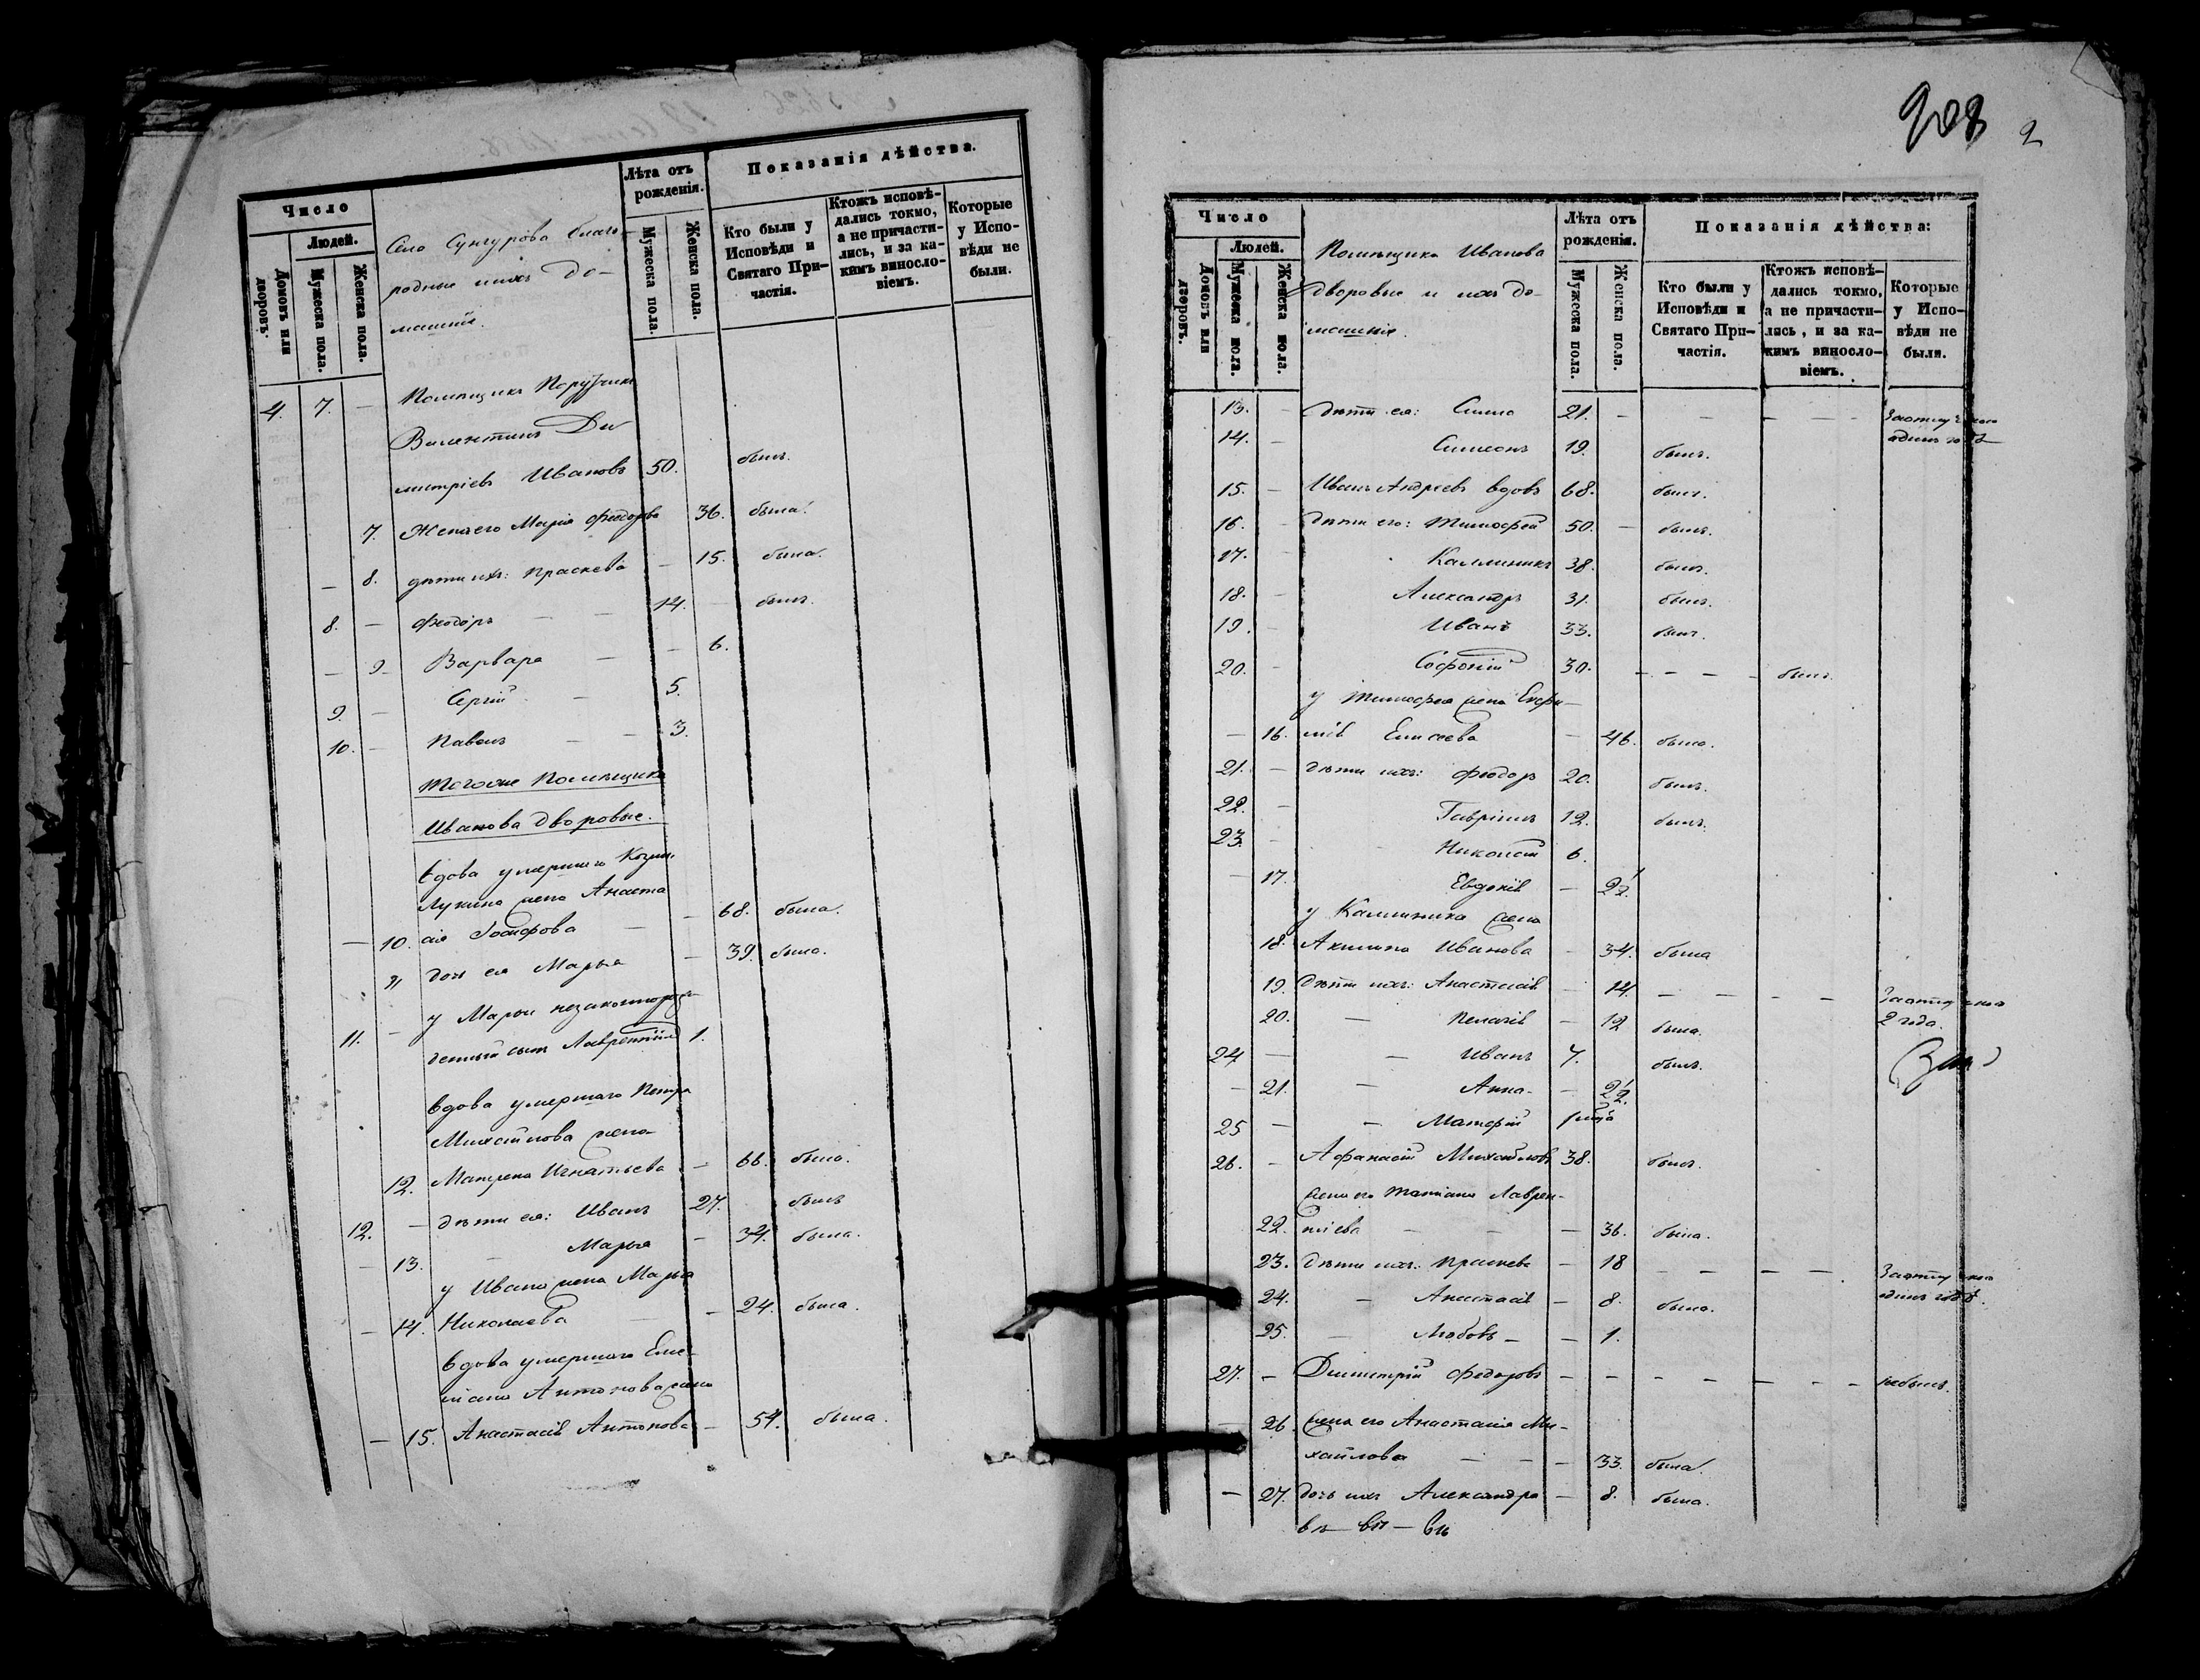 Число
Людей.
Домовъ или дворовъ.
Мужеска пола.
Женска пола.
Село Сунгурова благо-
родные и ихъ до-
машнія.
Лѣта отъ рожденія.
Мужеска пола.
Женска пола.
Показанія дѣйства.
Кто были у Исповѣди и Святаго При-частія.
Ктожъ исповѣ-дались токмо, а не причасти-лись, и за ка-кимъ винносло-віемъ.
Которые у Испо-вѣди не были.
4. 7. — Помѣщикъ Поручикъ
Валентинъ Ди-
митріевъ Ивановъ 50. былъ.
7. Жена его Марія Феодорова 36. была.
— 8. дѣти ихъ: Праскева — 15. была.
8. — Феодоръ — — 14. — былъ.
— 9. Варвара — — 6.
9. — Сергій — 5.
10. — Павелъ — — 3.
Тогоже Помѣщика
Иванова дворовые.
вдова умершаго Козмы
Лукина жена Анаста
— 10. сія Іосифова — — 68. была.
11 дочь ея Марья — 39. была.
у Марьи незаконнорож-
11. — денный сынъ Лаврентій 1.
вдова умершаго Петра
Михайлова жена
12. Матрена Игнатьева — 66. была.
12. — дѣти ея: Иванъ 27. былъ
— 13. — Марья — 34. была.
у Ивана жена Марья
— 14. Николаева — — 24. была.
вдова умершаго Еме-
ліана Антонова жена
— 15. Анастасія Антонова — 54. была.
208 2
Число
Людей.
Домовъ или дворовъ.
Мужеска пола.
Женска пола.
Помѣщика Иванова
дворовые и ихъ до-
машнія.
Лѣта отъ рожденія.
Мужеска пола.
Женска пола.
Показанія дѣйства:
Кто были у Исповѣди и Святаго При-частія.
Ктожъ исповѣ-дались токмо, а не причасти-лись, и за ка-кимъ винносло-віемъ.
Которые у Испо-вѣди не были.
13. — дѣти ея: 21. — — — — — Заотлучкою
одинъ годъ
14. — Симеонъ 19. былъ.
15. — Иванъ Андреевъ вдовъ 68. былъ.
16. — дѣти его: Тимофей 50. — былъ.
17. — Каллиникъ 38. былъ.
18. — Александръ 31. былъ.
19. — Иванъ 33. былъ.
20. — Софоній 30. — — — — былъ.
у Тимофея жена Евфи-
— 16. мія Елисеева — 46. была.
21. — дѣти ихъ: Феодоръ 20. былъ.
22. — Гавріилъ 12. былъ.
23. — Николай 6.
— 17. Евдокія — 2½
у Каллиника жена
18. Акилина Иванова — 34. была
19. дѣти ихъ: Анастасія — 14. — — — — Заотлучкою
2 года.
20. — Пелагія — 12 была.
24 — — Иванъ 7. былъ.
— 21. — Анна — — 2½.
25 — — Матфій
26. — Афанасій Михайловъ 38. былъ.
жена его Татіана Лаврен-
22. тіева — — — 36. была.
23. дѣти ихъ: Праскева — 18 — — — — Заотлучкою
одинъ годъ.
24. — Анастасія — 8. была.
25. — Любовь — — 1.
27. — Димитрій Федоровъ — — — — — — — небылъ.
— 26. жена его Анастасія Ми-
хайлова — — — 33. была.
— 27. дочь ихъ Александра — 8. была.